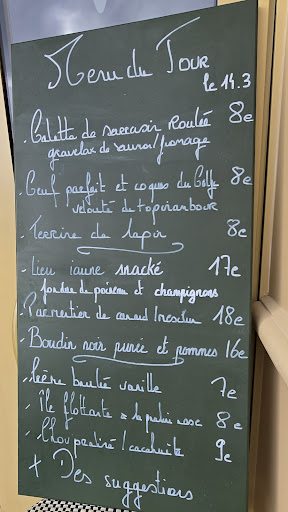 Menu du Jour
le 14.3
. Galette de sarrasin Roulée 8e
gravelax de saumon/fromage
. Oeuf parfait et coques du Golfe 8e
velouté de topinambour
. Terrine de lapin 8e
. Lieu jaune snacké 17e
fondue de poireau et champignons
. Parmentier de canard/ 18e
. Boudin noir purée et pommes 16e
. Crème brulée vanille 7e
. Ile flottante à la praline rose 8e
. Chou praliné / cacahuète 9e
+ Des suggestions